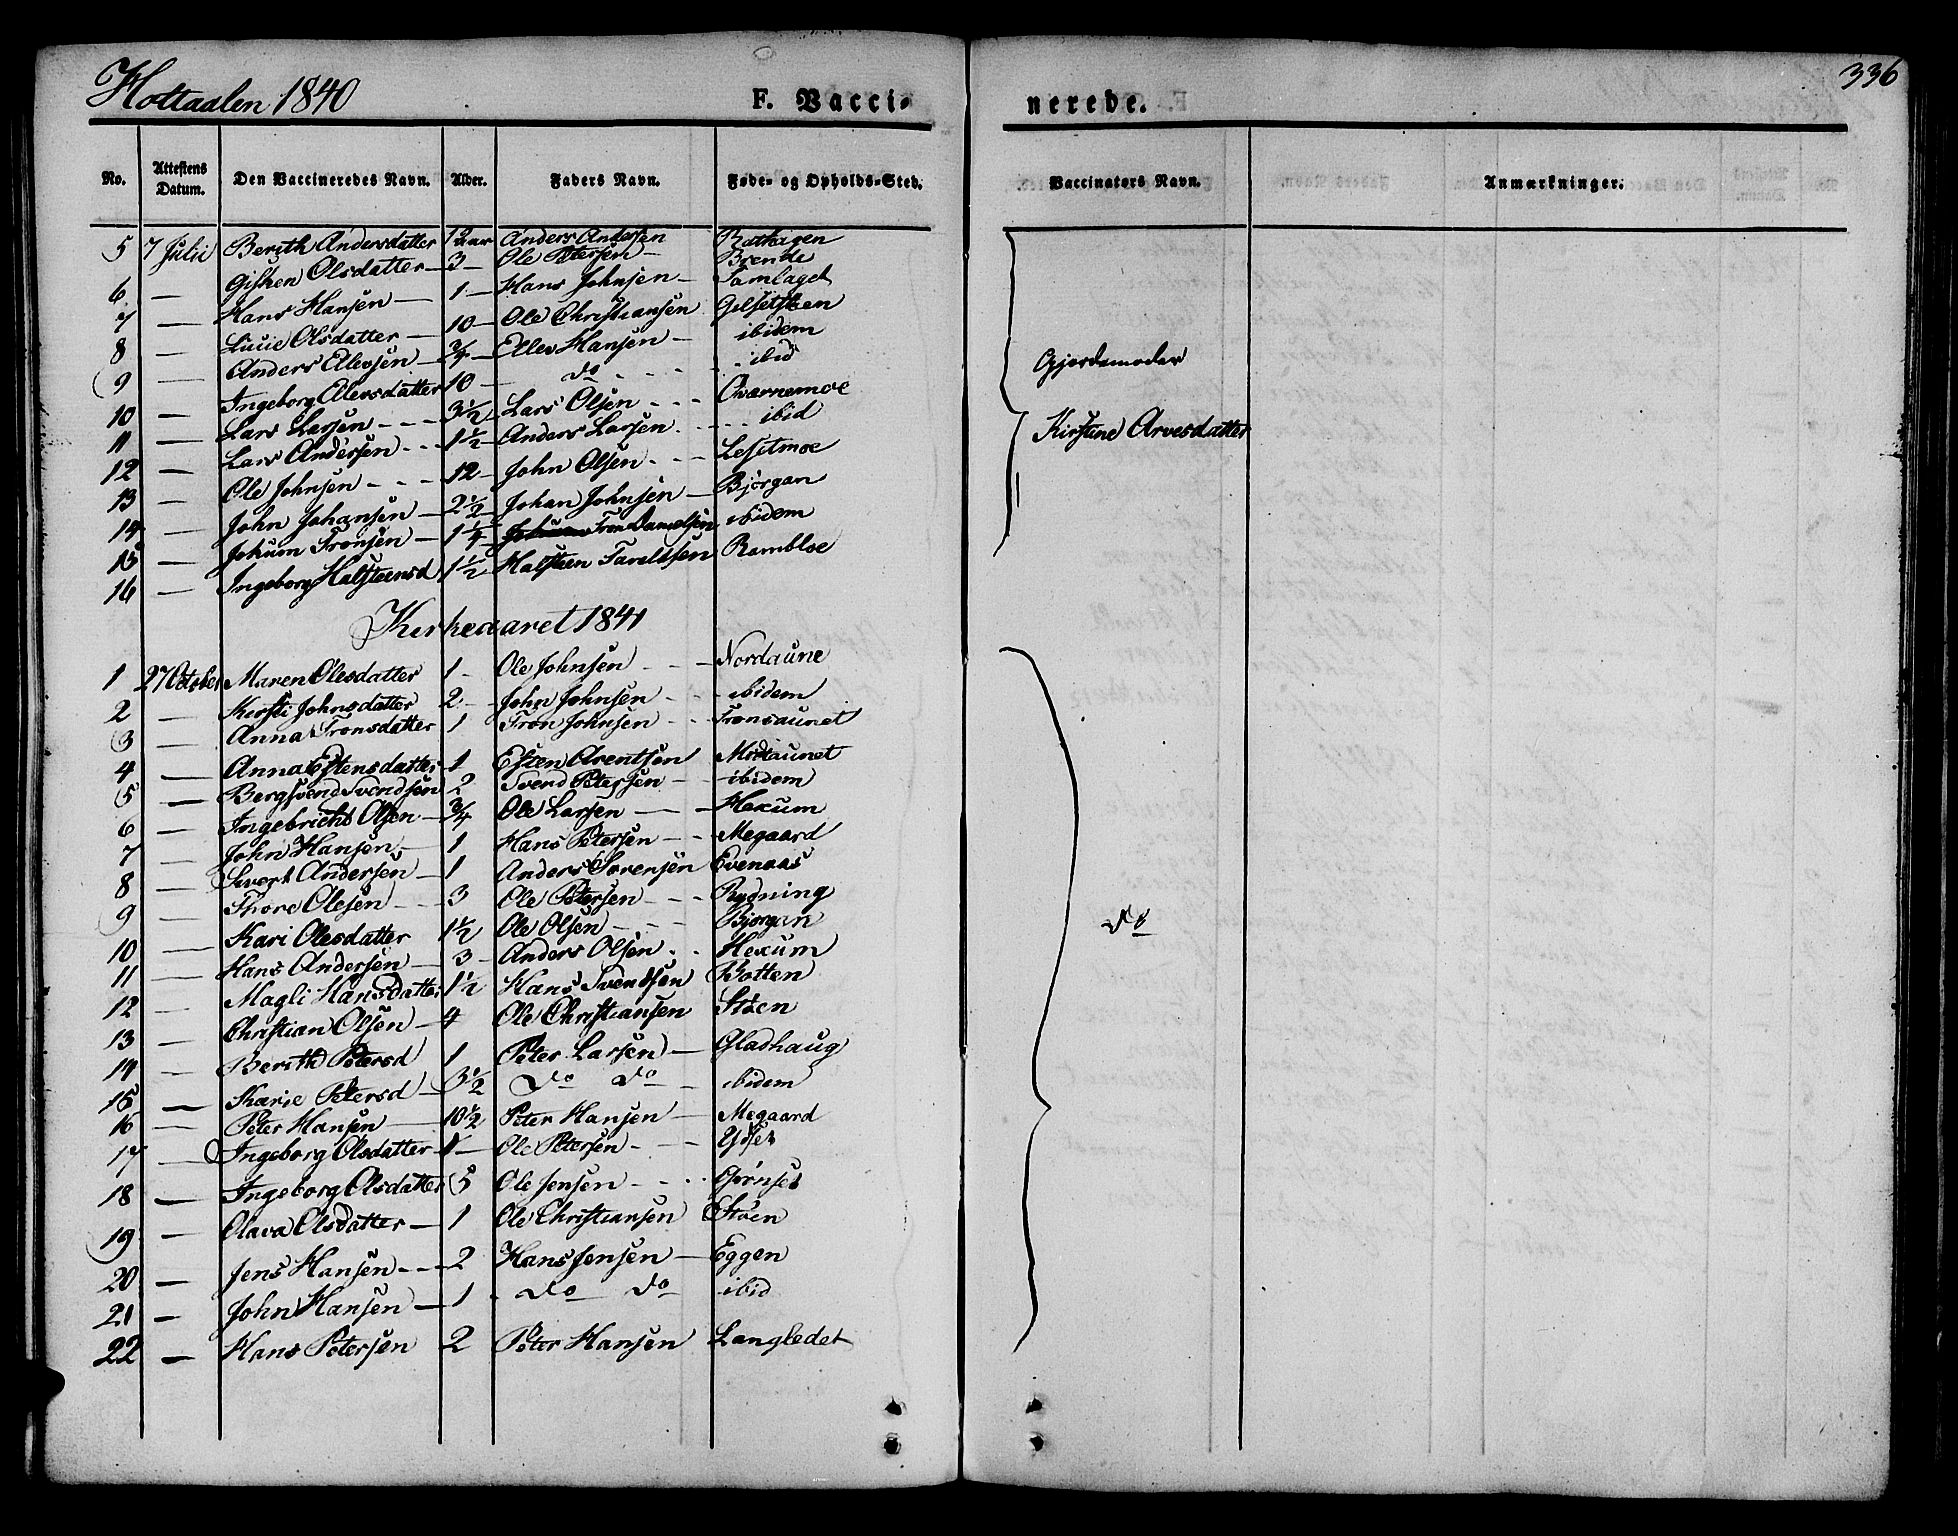 Holtaalen 1840
F. Vacci-
nerede.
336
No. Attestens Datum. Den Vaccineredes Navn. Alder. Faders Navn. Føde- og Opholds-Sted. Vaccinators Navn. Anmærkninger.
5 7 Julii Berith Andersdatter 12 aar Anders Andersen
Gisken Olsdatter 3 Ole Petersen Brende
6 — Hans Hansen — 1 — Hans Johnsen — Tamlaget
7 — Lucie Olsdatter — 10 — Ole Christiansen
8 — Anders Ellevsen — 3/4 — Ellev Hansen — ibidem
9 — Ingeborg Ellevsdatter 10 — do ibid
10 — Lars Larsen 3 1/2 Lars Olsen Qværnemoe
11 — Lars Andersen 1 1/2 Anders Larsen ibid
12 — Ole Johnsen 12 — John Olsen
13 — John Johansen — 2 1/2 Johan Johnsen — Bjørgan
14 — Tronsen — 1 1/4 Tron ibidem
15 — Ingeborg Halsteensd 1 1/2 Halsteen Rambloe
16 —
Gjordemoder
Kirstine Arvesdatter
Kirkeaaret 1841
1 27 October Maren Olesdatter 1 - Ole Johnsen Nordaune
2 — Kirsti Johnsdatter 2 John Johnsen ibidem
3 — Anna Tronsdatter 1 Tron Johnsen Tronsaunet
4 — Anna Estensdatter 1 Esten Arentsen Midtaunet
5 — Bergsvend Svendsen 2 Svend Petersen — ibidem
6 — Ingebricht Olsen 3/4 Ole Larsen — Hexum
7 — John Hansen — 1 Hans Petersen Megaard
8 — Sivert Andersen — 1 Anders Sorensen Evenaas
9 — Thore Olesen 3 Ole Petersen Rydning
10 — Kari Olesdatter 1 1/2 Ole Olsen Bjørgan
11 — Hans Andersen — 3 — Anders Olsen Hexum
12 — Magli Hansdatter 1 1/2 Hans Svendsen Botten
13 — Christian Olsen — 4 Ole Christiansen Støen
14 — Berith Petersd 1 Peter Larsen — Gladhaug
15 — Karie Petersd — 3 1/2 Do Do — ibidem
16 — Peter Hansen — 10 1/2 Peter Hansen — Megaard
17 — Ingeborg Olsdatter 1 — Ole Petersen
18 — Ingeborg Olsdatter 5 Ole Jensen
19 — Olava Olsdatter — 1 Ole Christiansen Støen
20 — Jens Hansen 2 Hans Jensen — Eggen
21 — John Hansen — 1 Do Do ibid
22 — Hans Petersen 2 Peter Hansen Langledet
Do